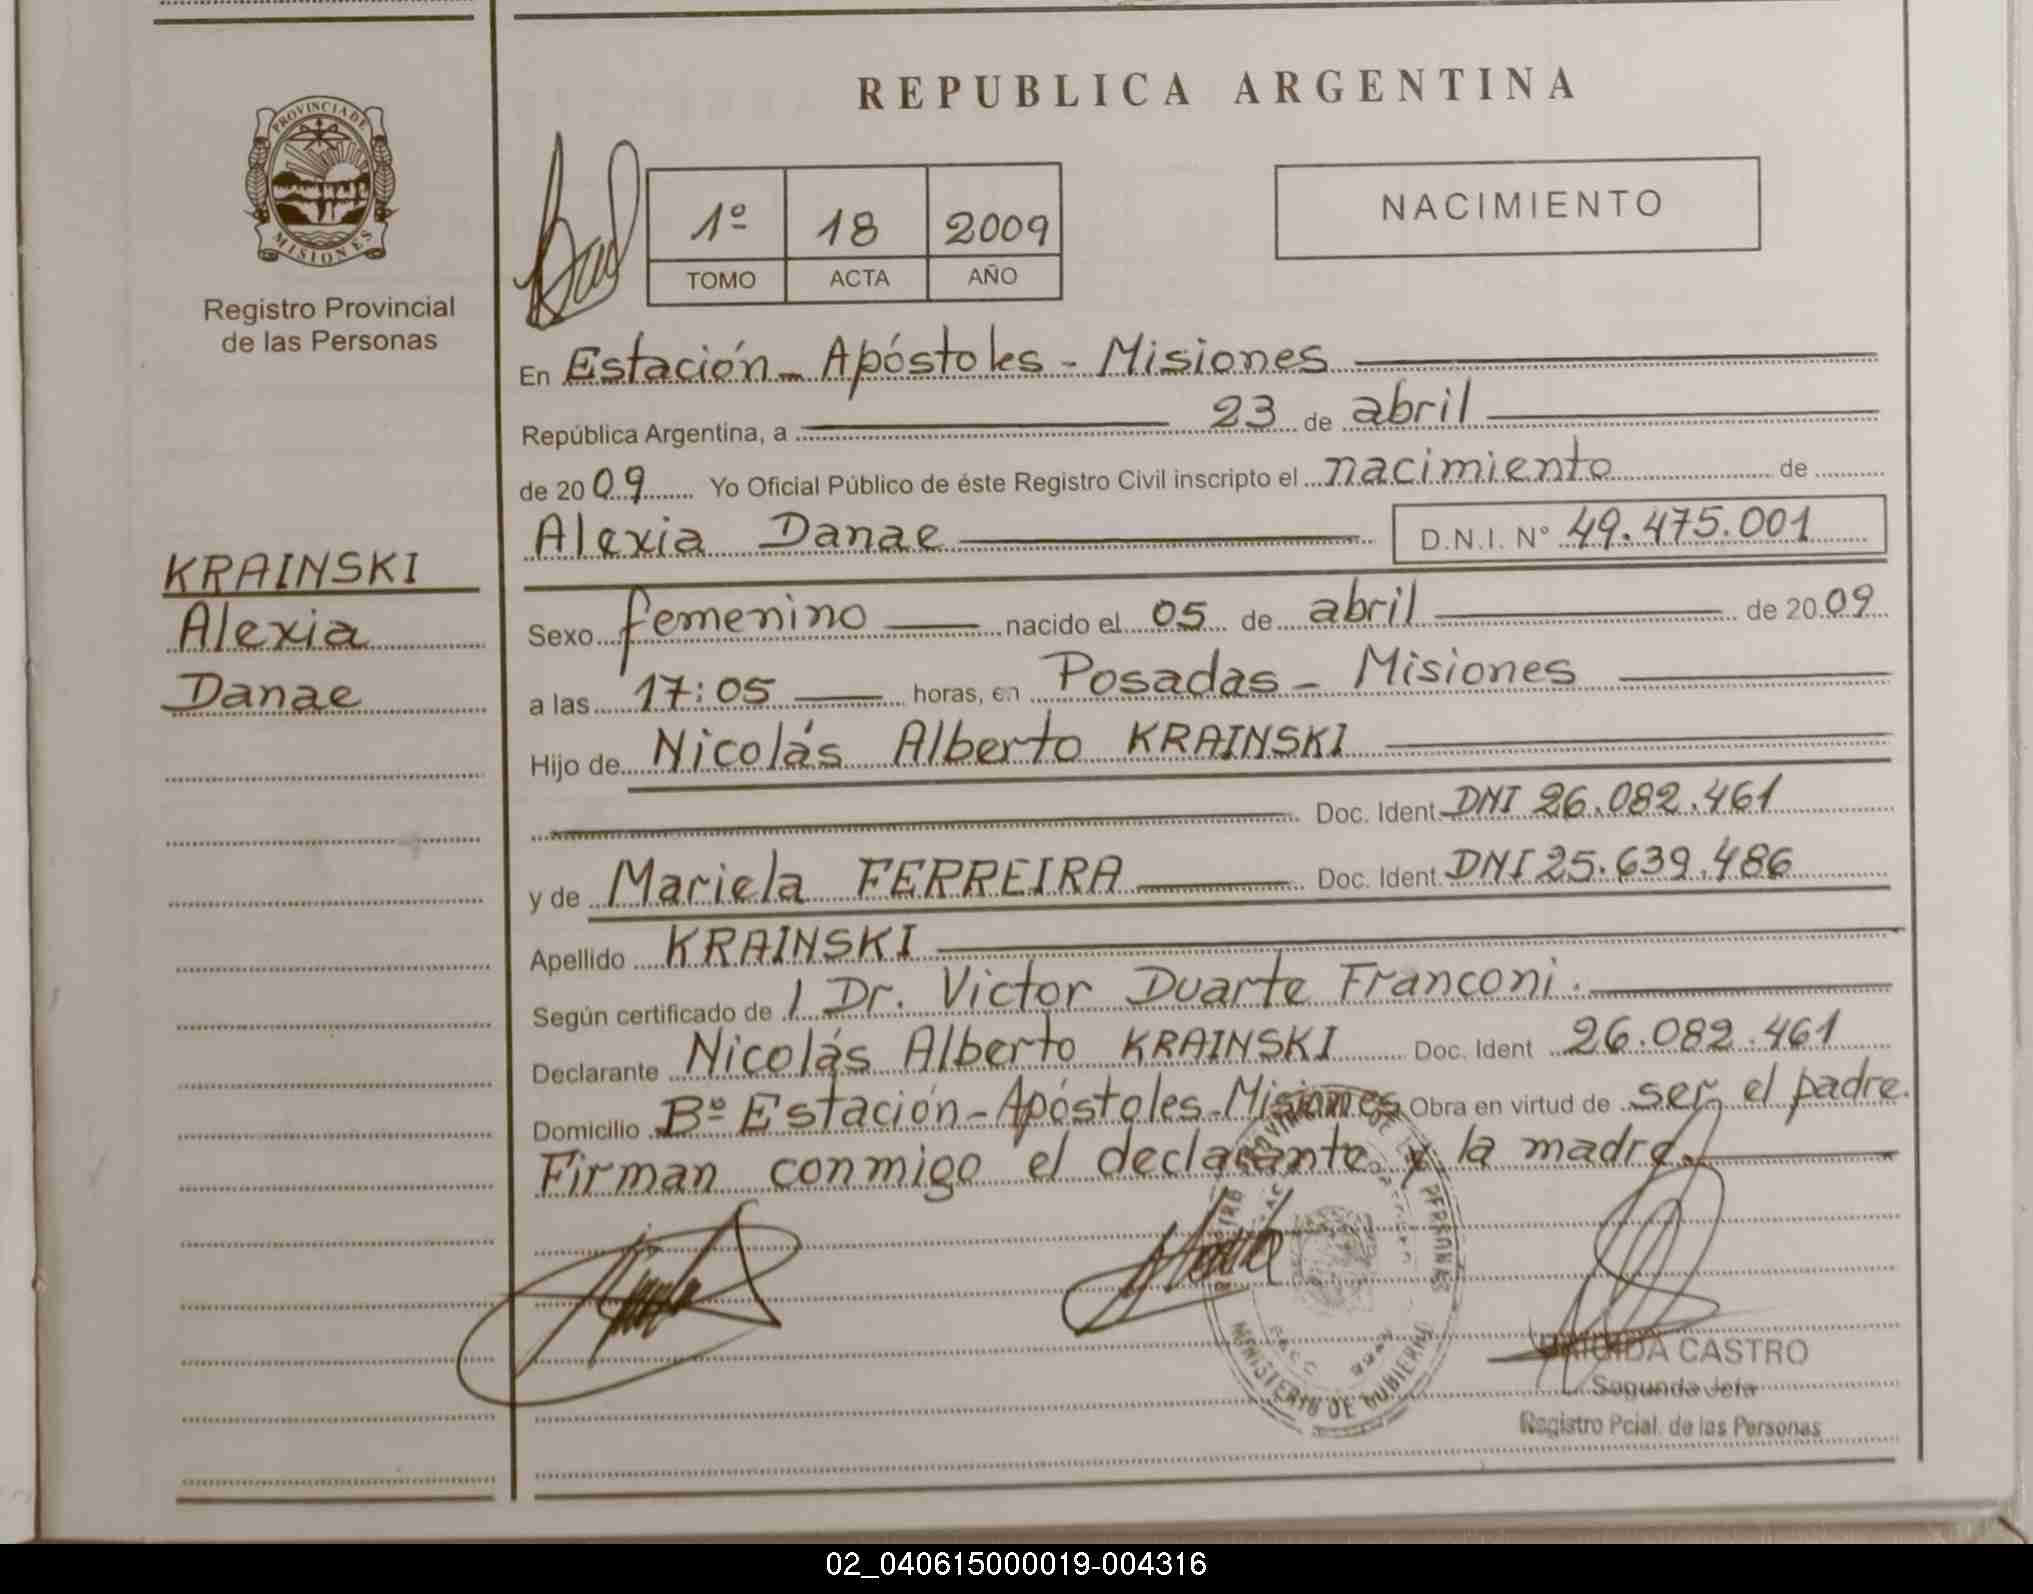 REPUBLICA ARGENTINA
PROVINCIA DE
MISIONES
Registro Provincial
de las Personas
1º 18 2009
TOMO ACTA AÑO
NACIMIENTO
En Estación - Apóstoles - Misiones
República Argentina, a 23 de abril
de 2009 Yo Oficial Público de éste Registro Civil inscripto el nacimiento de
Alexia Danae D.N.I. Nº 49.475.001
KRAINSKI
Alexia
Danae
Sexo femenino nacido el 05 de abril de 2009
a las 17:05 horas, en Posadas - Misiones
Hijo de Nicolás Alberto KRAINSKI
Doc. Ident. DNI 26.082.461
y de Mariela FERREIRA Doc. Ident. DNI 25.639.486
Apellido KRAINSKI
Según certificado de / Dr. Victor Duarte Franconi.
Declarante Nicolás Alberto KRAINSKI Doc. Ident 26.082.461
Domicilio Bº Estación - Apóstoles - Misiones Obra en virtud de ser el padre.
Firman conmigo el declarante y la madre.
MINISTERIO DE GOBIERNO
CASTRO
Segunda Jefa
Registro Pcial. de las Personas
02_040615000019-004316